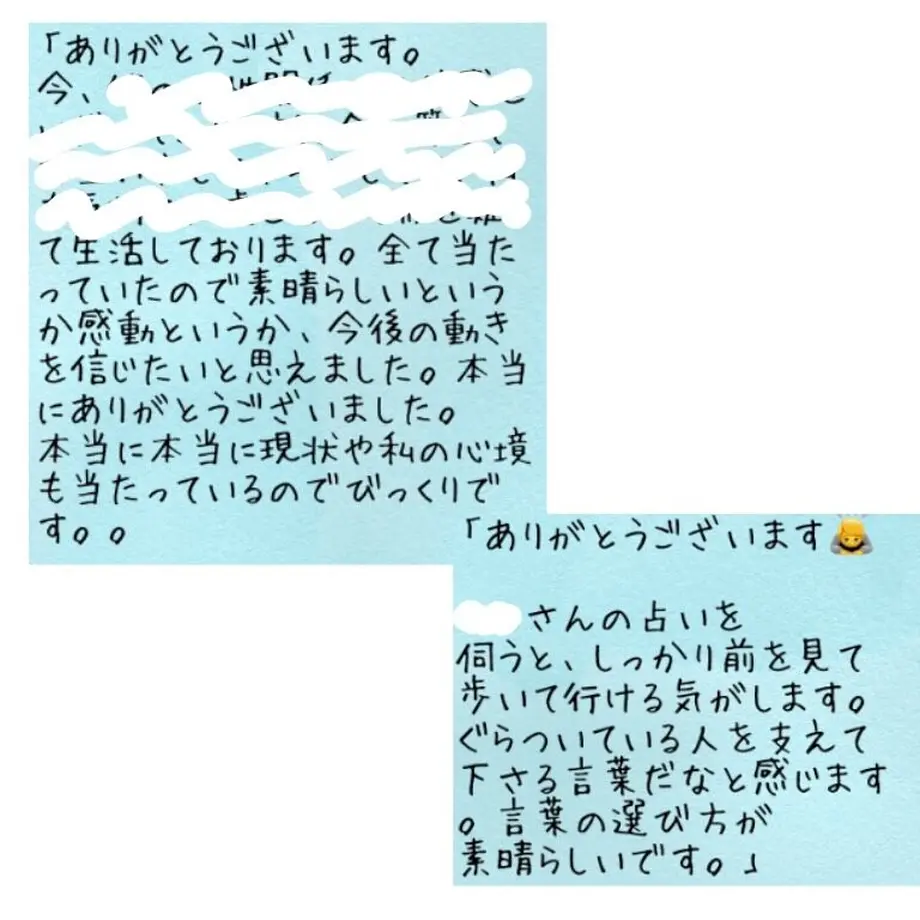 「ありがとうございます。
今、
て生活しております。全て当た
っていたので素晴らしいという
か感動というか、今後の動き
を信じたいと思えました。本当
にありがとうございました。
本当に本当に現状や私の心境
も当たっているのでびっくりで
す。。
「ありがとうございます🙇
さんの占いを
伺うと、しっかり前を見て
歩いて行ける気がします。
ぐらついている人を支えて
下さる言葉だなと感じます
。言葉の選び方が
素晴らしいです。」